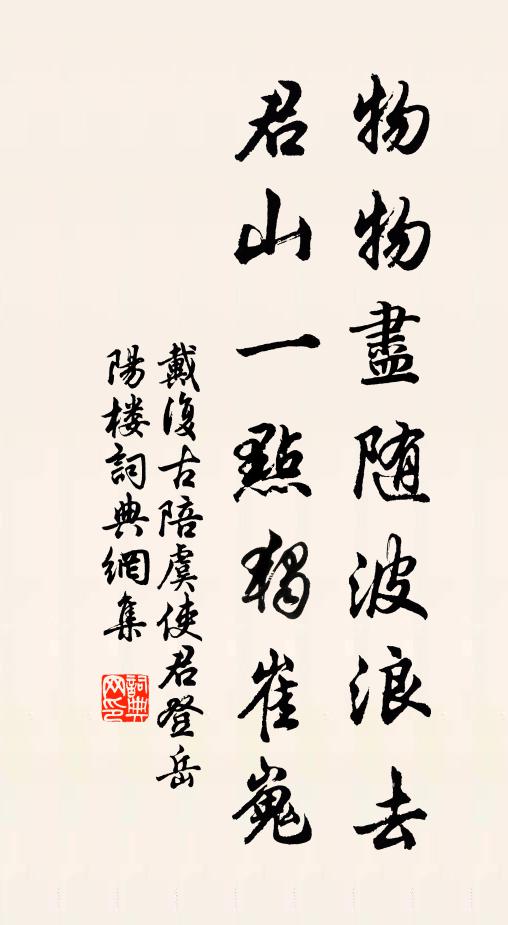 物物盡随波浪去
君山一點獨崔嵬
戴復古陪虞使君登岳
陽楼詞典網集
詞典
网印